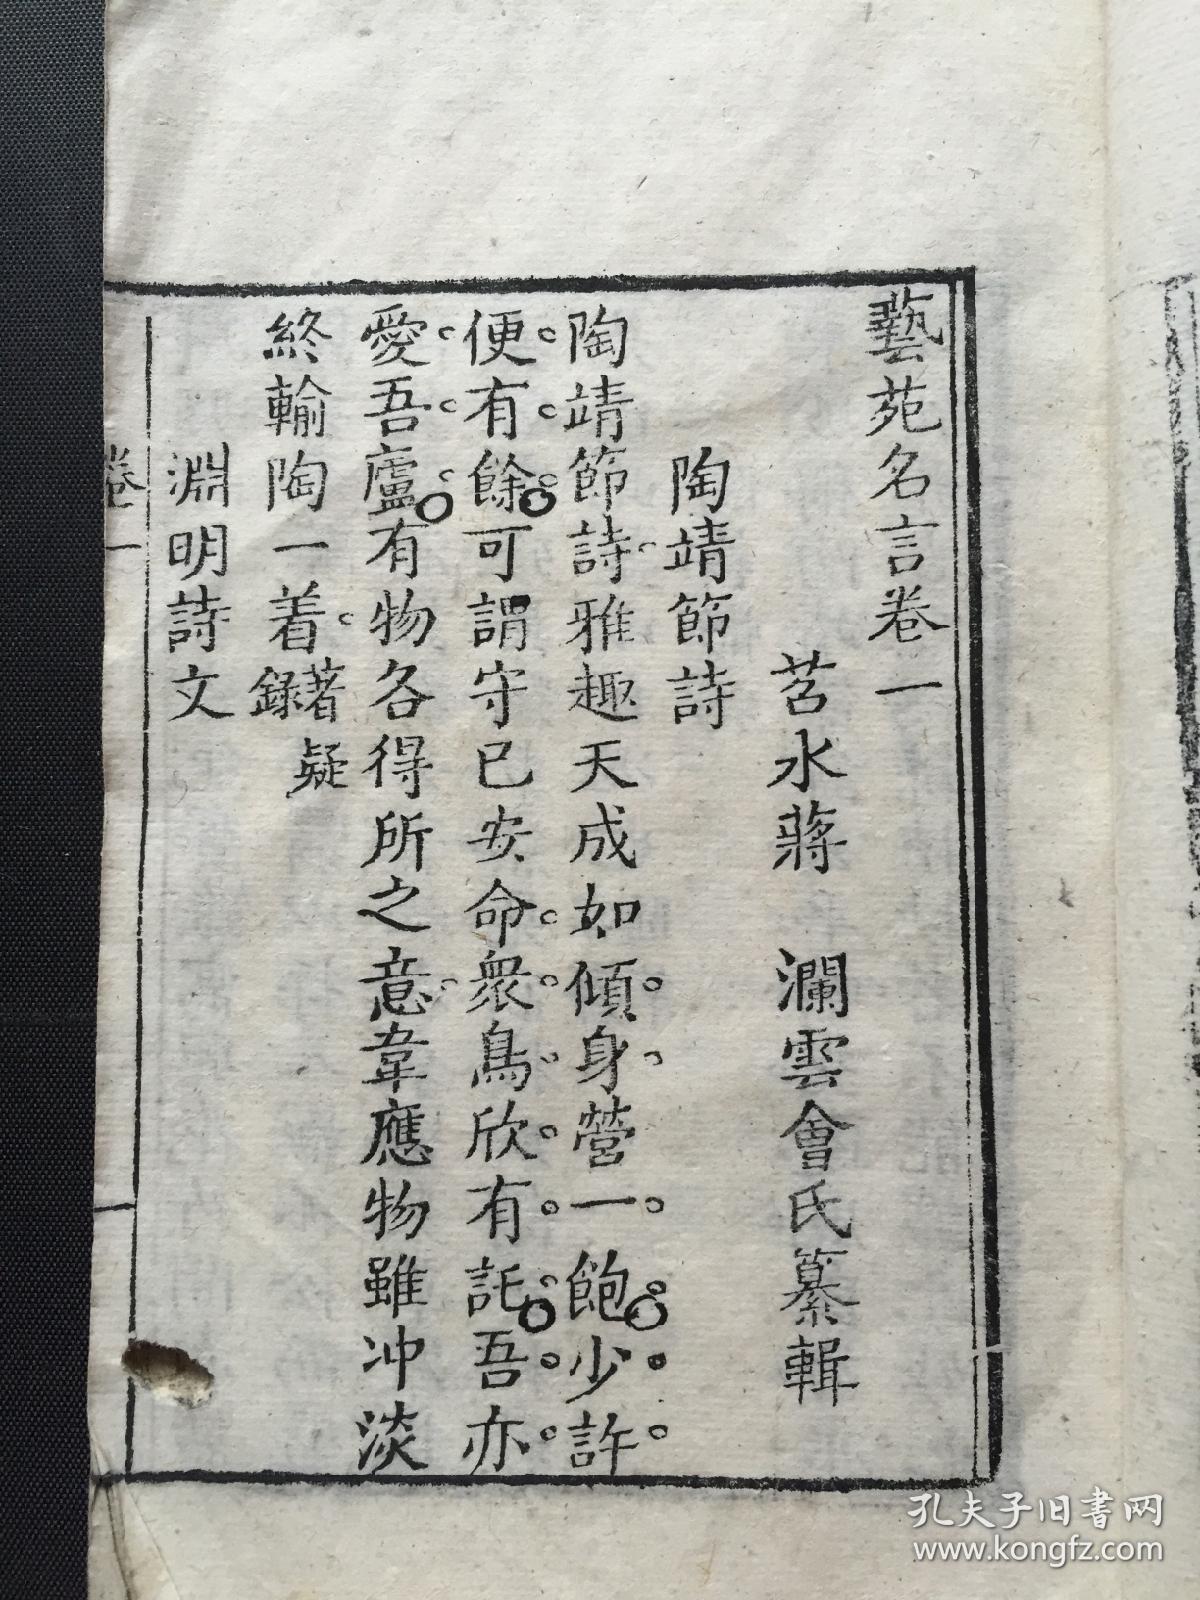 藝苑名言卷一
苕水蔣　瀾雲會氏纂輯
陶靖節詩
陶靖節詩雅趣天成如傾身營一飽少許
便有餘可謂守己安命衆鳥欣有託吾亦
愛吾廬有物各得所之意韋應物雖冲淡
終輸陶一着著疑錄
淵明詩文
卷一
一
孔夫子旧书网
www.kongfz.com